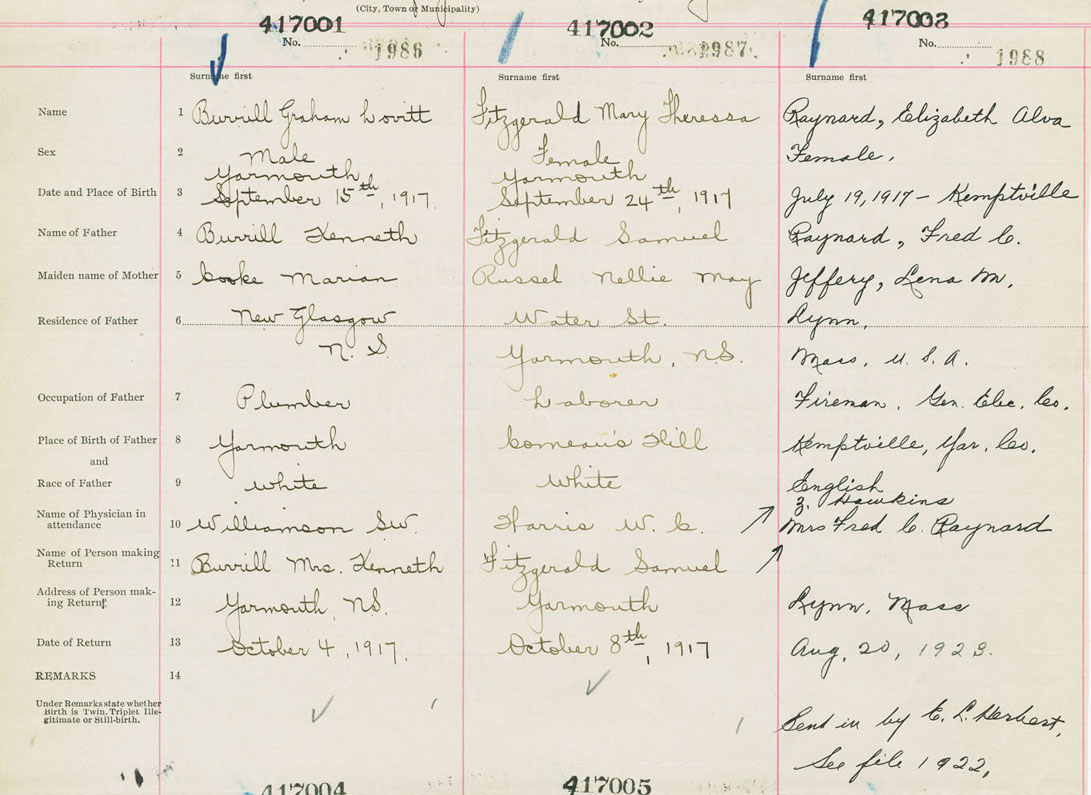 (City, Town or Municipality)
417001
417002
417003
No.
1986
No.
2987
No.
1988
Surname first
Surname first
Surname first
Name
1
Burrill Graham Lovitt
Fitzgerald Mary Theressa
Raynard, Elizabeth Alva
Sex
2
Male
Female
Female.
Date and Place of Birth
3
Yarmouth
September 15th, 1917.
Yarmouth
September 24th, 1917
July 19, 1917 - Kemptville
Name of Father
4
Burrill Kenneth
Fitzgerald Samuel
Raynard, Fred C.
Maiden name of Mother
5
Cooke Marian
Russel Nellie May
Jeffery, Lena M.
Residence of Father
6
New Glasgow
N. S.
Water St.
Yarmouth, N.S.
Lynn,
Mass, U. S. A.
Occupation of Father
7
Plumber
Laborer
Fireman. Gen. Elec. Co.
Place of Birth of Father
8
Yarmouth
Comeau's Hill
Kemptville, Yar. Co.
and
Race of Father
9
White
White
English
Name of Physician in
attendance
10
Williamson S.W.
Harris W. C.
Z. Hawkins
Mrs Fred C. Raynard
Name of Person making
Return
11
Burrill Mrs. Kenneth
Fitzgerald Samuel
Address of Person mak-
ing Return
12
Yarmouth, N.S.
Yarmouth
Lynn, Mass
Date of Return
13
October 4, 1917.
October 8th, 1917
Aug, 20, 1923.
REMARKS
14
Under Remarks state whether
Birth is Twin, Triplet Ille-
gitimate or Still-birth.
Send in by E. L. Herbert,
See file 1922,
417004
417005